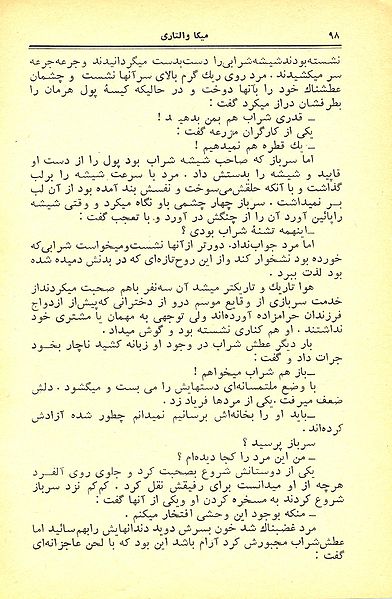 ۹۸
میکا والتاری
نشسته‌بودندشیشه‌شرابی‌را دست‌بدست میگردانیدند وجرعه‌جرعه
سر میکشیدند . مرد روی ریك گرم بالای سرآنها نشست و چشمان
عطشناك خود را بآنها دوخت و در حالیکه کیسهٔ پول هرمان را
بطرفشان دراز میکرد گفت :
ــ قدری شراب هم بمن بدهید !
یکی از کارگران مزرعه گفت :
ــ یك قطره هم نمیدهیم !
اما سرباز که صاحب شیشه شراب بود پول را از دست او
قاپید و شیشه را بدستش داد . مرد با سرعت شیشه را برلب
گذاشت و با آنکه حلقش‌می‌سوخت و نفسش بند آمده بود از آن لب
بر نمیداشت . سرباز چهار چشمی باو نگاه میکرد و وقتی شیشه
راپائین آورد آن را از چنگش در آورد و با تعجب گفت :
ــ اینهمه تشنهٔ شراب بودی ؟
اما مرد جواب‌نداد. دورتر ازآنها نشست‌ومیخواست شرابی‌که
خورده بود نشخوار کند واز این روح‌تازه‌ای که در بدنش دمیده شده
بود لذت ببرد .
هوا تاریك و تاریکتر میشد آن سه‌نفر باهم صحبت میکردنداز
خدمت سربازی از وقایع موسم درو از دخترانی که‌پیش‌از ازدواج
فرزندان حرامزاده آورده‌اند ولی توجهی به مهمان یا مشتری خود
نداشتند . او هم کناری نشسته بود و گوش میداد .
بار دیگر عطش شراب در وجود او زبانه کشید ناچار بخود
جرات داد و گفت :
ــ باز هم شراب میخواهم !
با وضع ملتمسانه‌ای دستهایش را می بست و میگشود . دلش
ضعف میرفت .یکی از مردها فریاد زد .
ــ باید او را بخانه‌اش برسانیم نمیدانم چطور شده آزادش
کرده‌اند .
سرباز پرسید ؟
ــ من این مرد را کجا دیده‌ام ؟
یکی از دوستانش شروع بصحبت کرد و جاوی روی آلفرد
هرچه از او میدانست برای رفیقش نقل کرد . کم‌کم نزد سرباز
شروع کردند به مسخره کردن او ویکی از آنها گفت :
ــ منکه بوجود این وحشی افتخار میکنم .
مرد غضبناك شد خون بسرش دوید دندانهایش رابهم‌سائید اما
عطش‌شراب مجبورش کرد آرام باشد این بود که با لحن عاجزانه‌ای
گفت :